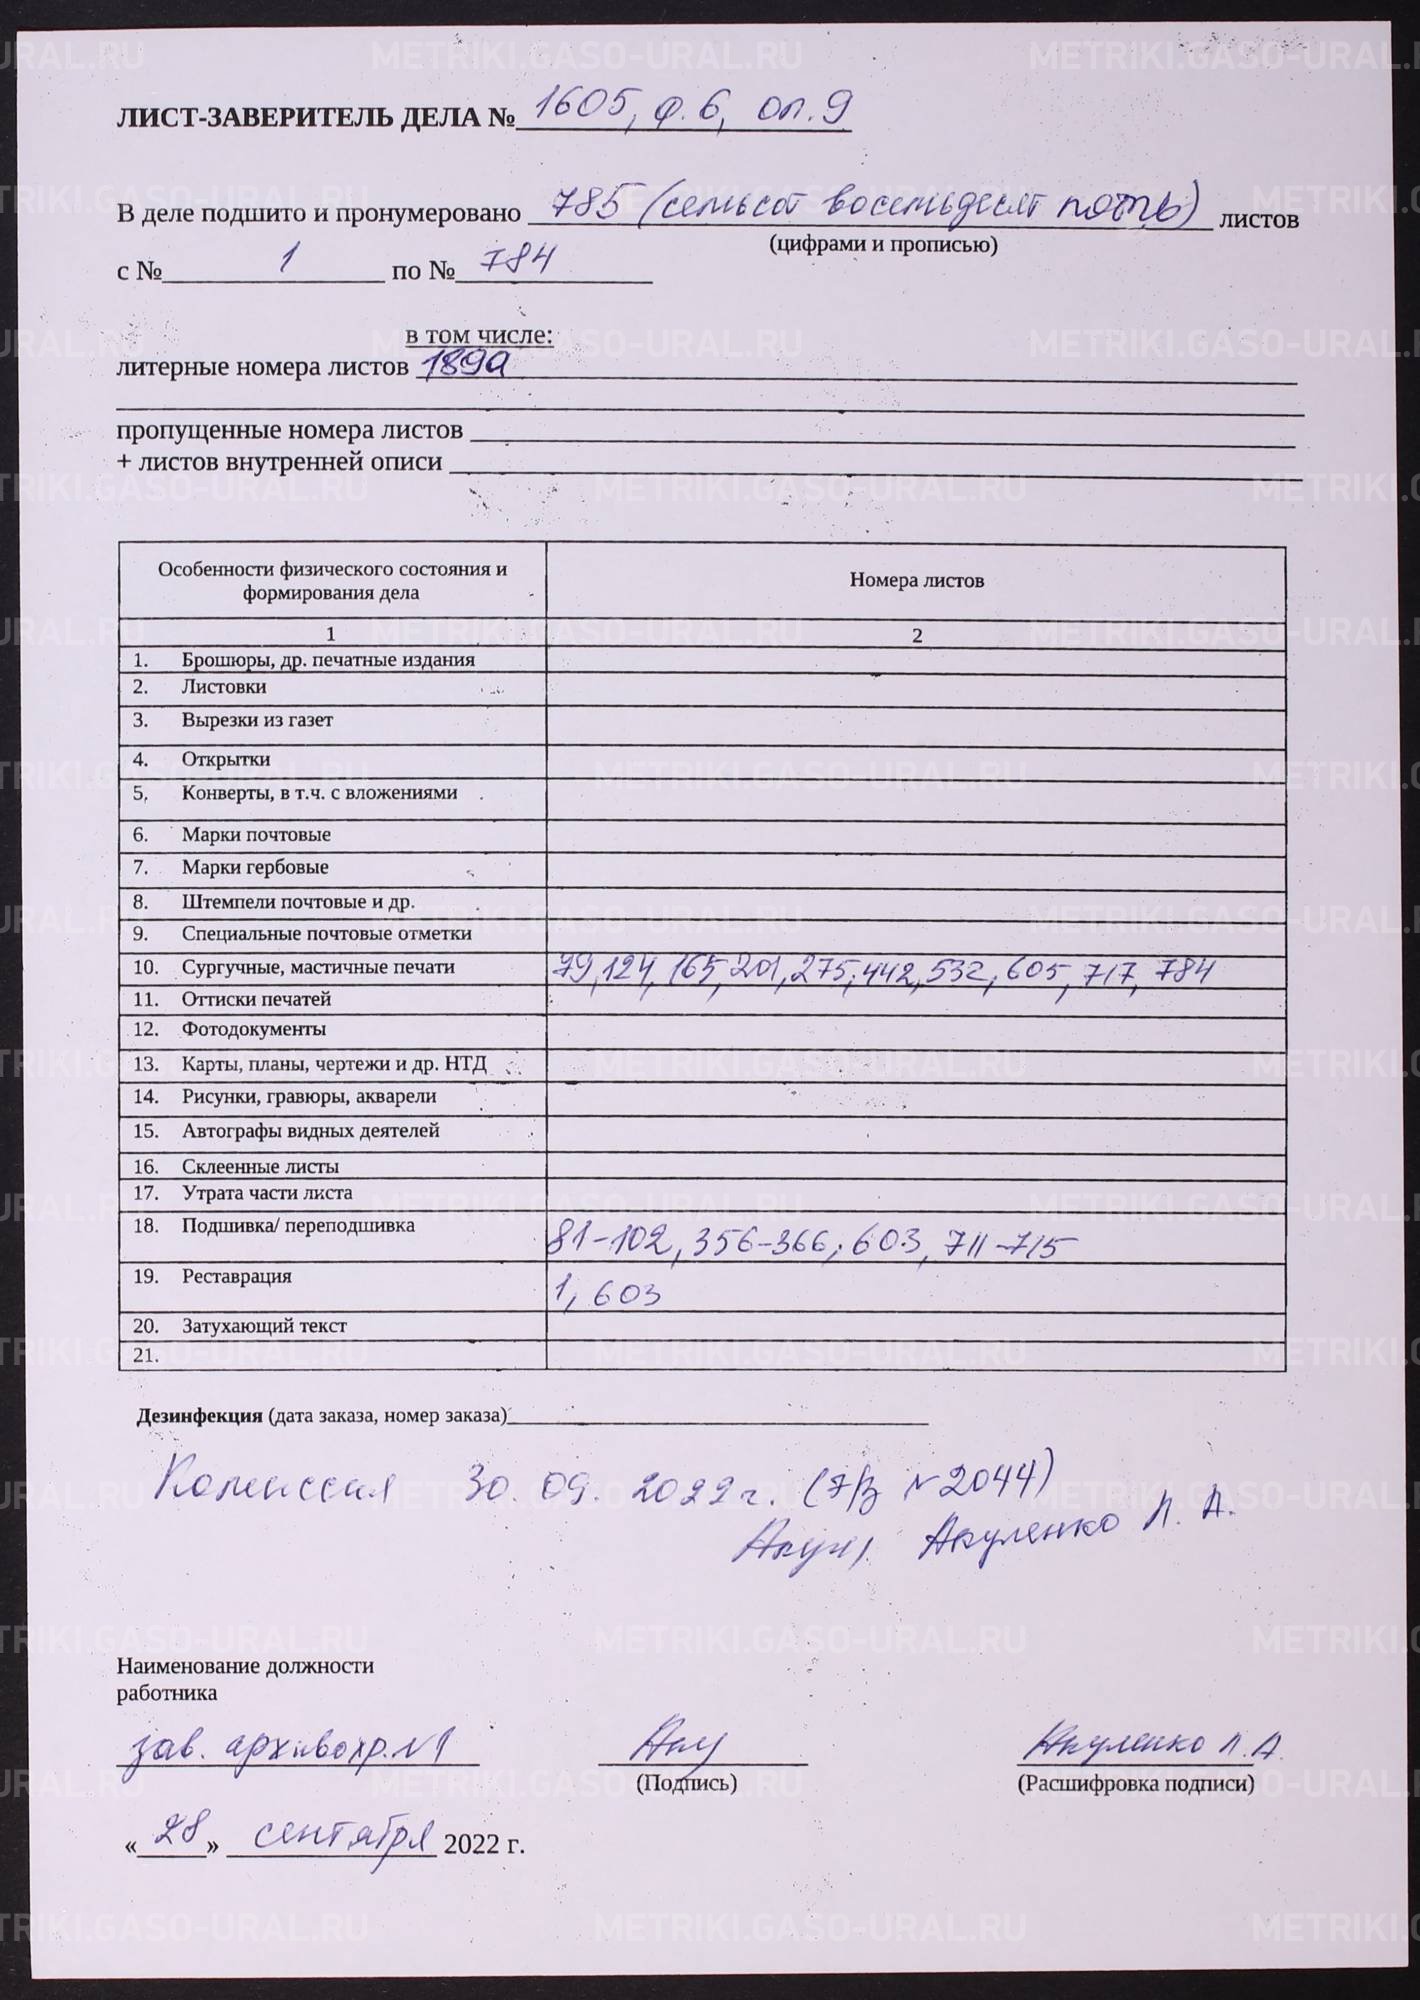 ЛИСТ-ЗАВЕРИТЕЛЬ ДЕЛА № 1605, ф. 6, оп. 9
В деле подшито и пронумеровано 785 (семьсот восемьдесят пять) листов
(цифрами и прописью)
с № 1 по № 784
в том числе:
литерные номера листов 189а
пропущенные номера листов
+ листов внутренней описи
Особенности физического состояния и формирования дела Номера листов
1 2
1. Брошюры, др. печатные издания
2. Листовки
3. Вырезки из газет
4. Открытки
5. Конверты, в т.ч. с вложениями
6. Марки почтовые
7. Марки гербовые
8. Штемпели почтовые и др.
9. Специальные почтовые отметки
10. Сургучные, мастичные печати 79, 124, 165, 201, 275, 442, 532, 605, 717, 784
11. Оттиски печатей
12. Фотодокументы
13. Карты, планы, чертежи и др. НТД
14. Рисунки, гравюры, акварели
15. Автографы видных деятелей
16. Склеенные листы
17. Утрата части листа
18. Подшивка/ переподшивка 81-102, 356-366, 603, 711-715
19. Реставрация 1, 603
20. Затухающий текст
21.
Дезинфекция (дата заказа, номер заказа)
Комиссия 30.09.2022 г. (т/з №2044)
Акуленко Л. А.
Наименование должности
работника
зав. архивохр. №1 Акуленко Л. А.
(Подпись) (Расшифровка подписи)
«28» сентября 2022 г.
METRIKI.GASO-URAL.RU